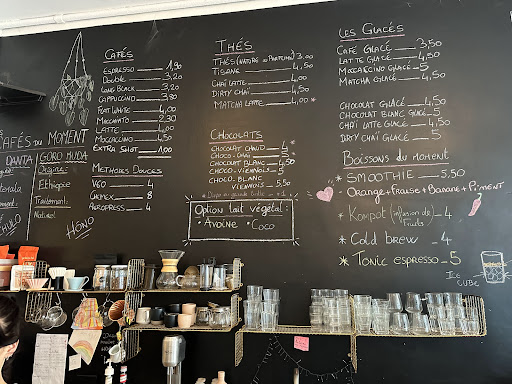 CAFÉS DU MOMENT
DANTA
GORO MUDA
Origine:
Ethiopie
Traitement:
Naturel
HONO
CAFÉS
ESPRESSO 1,90
DOUBLE 3,20
LONG BLACK 3,20
CAPPUCCINO 3,90
FLAT WHITE 4,00
MACCHIATO 2,30
LATTE 4,00
MOCCACCINO 4,50
EXTRA SHOT 1,00
METHODES DOUCES
V60 4
CHEMEX 8
AEROPRESS 4
THÉS
THÉS (NATURE OU PARFUMÉ) 3,00
TISANE 4,50
CHAÏ LATTE 4,00
DIRTY CHAÏ 4,50
MATCHA LATTE 4,00 *
CHOCOLATS
CHOCOLAT CHAUD 4
CHOCO-CHAÏ 4
CHOCOLAT BLANC 4,50
CHOCO-VIENNOIS 5
CHOCO. BLANC
VIENNOIS 5,50
Option lait végétal:
• AVOINE • COCO
LES GLACÉS
CAFÉ GLACÉ 3,50
LATTE GLACÉ 4,50
MOCCACCINO GLACÉ 5
MATCHA GLACÉ 4,50
CHOCOLAT GLACÉ 4,50
CHOCO BLANC GLACÉ 5
CHAÏ LATTE GLACÉ 4,50
DIRTY CHAÏ GLACÉ 5
BOISSONS DU MOMENT
* SMOOTHIE 5,50
- ORANGE + FRAISE + BANANE + PIMENT
* Kompot (infusion de fruits) - 4
* Cold brew - 4
* TONIC ESPRESSO - 5
ICE
CUBE